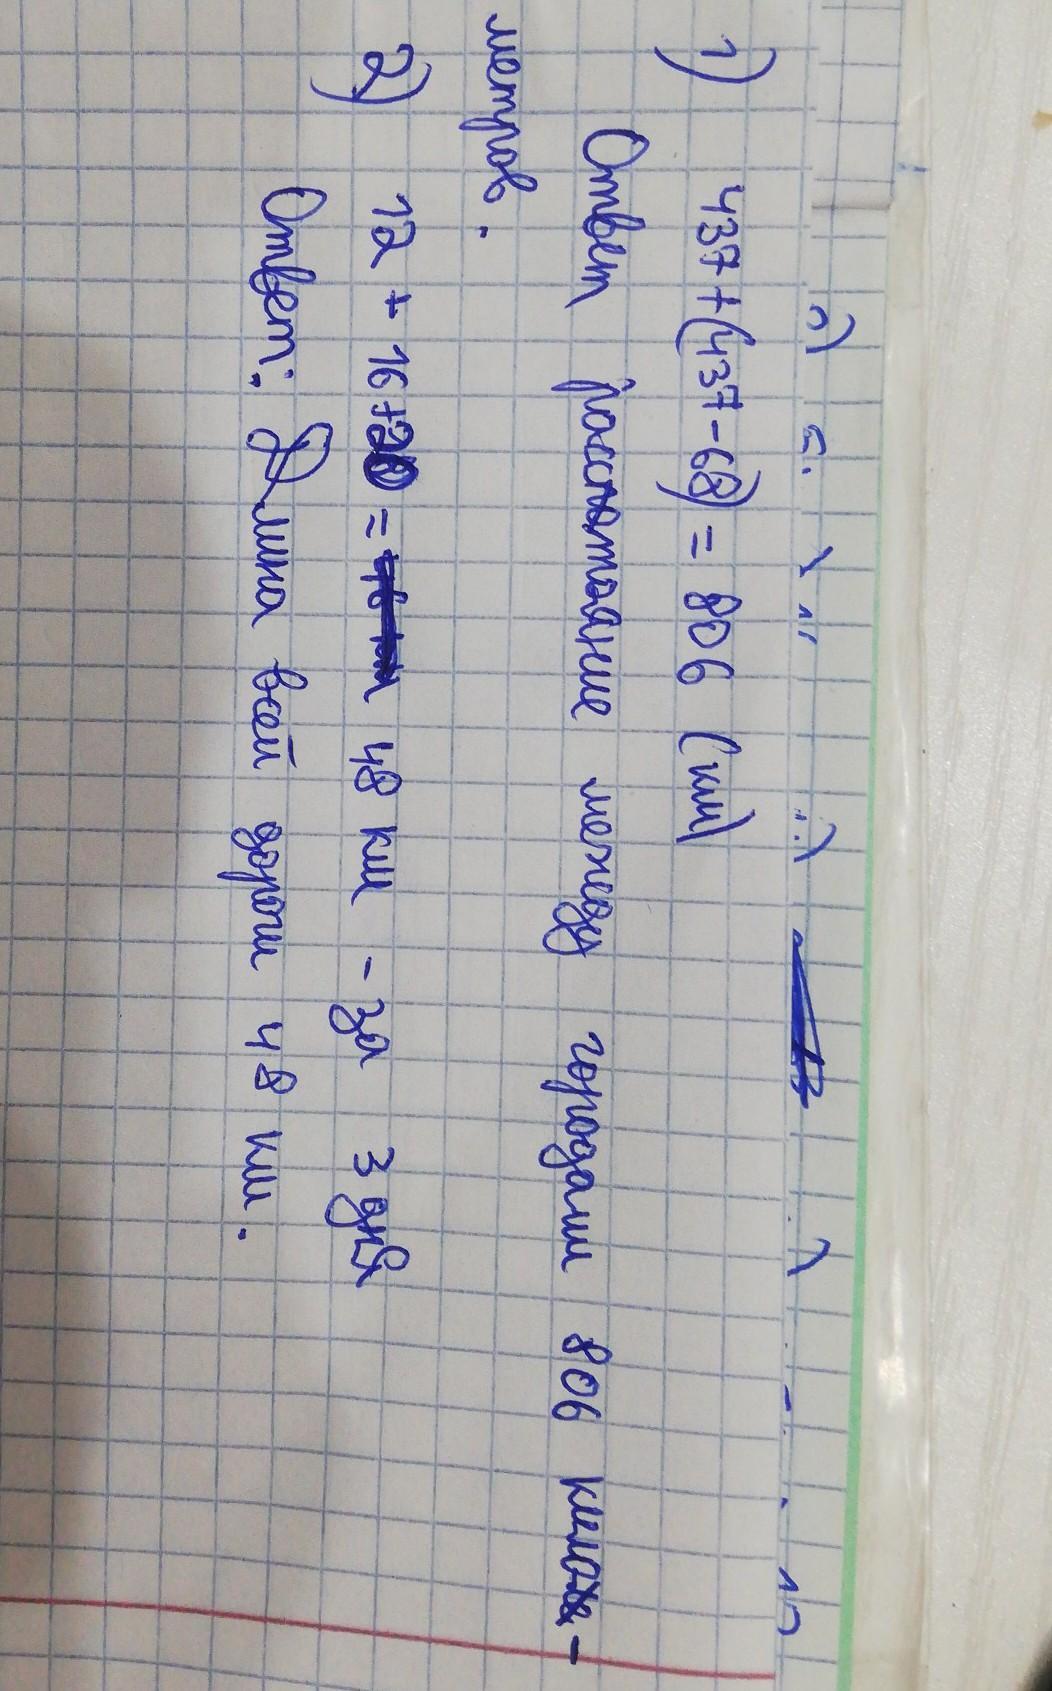 1) 437+(437-68) = 806 (км)
Ответ расстояние между городами 806 кило-
метров.
2) 12 + 16+20 = 48 км - за 3 дня
Ответ: Длина всей дороги 48 км.